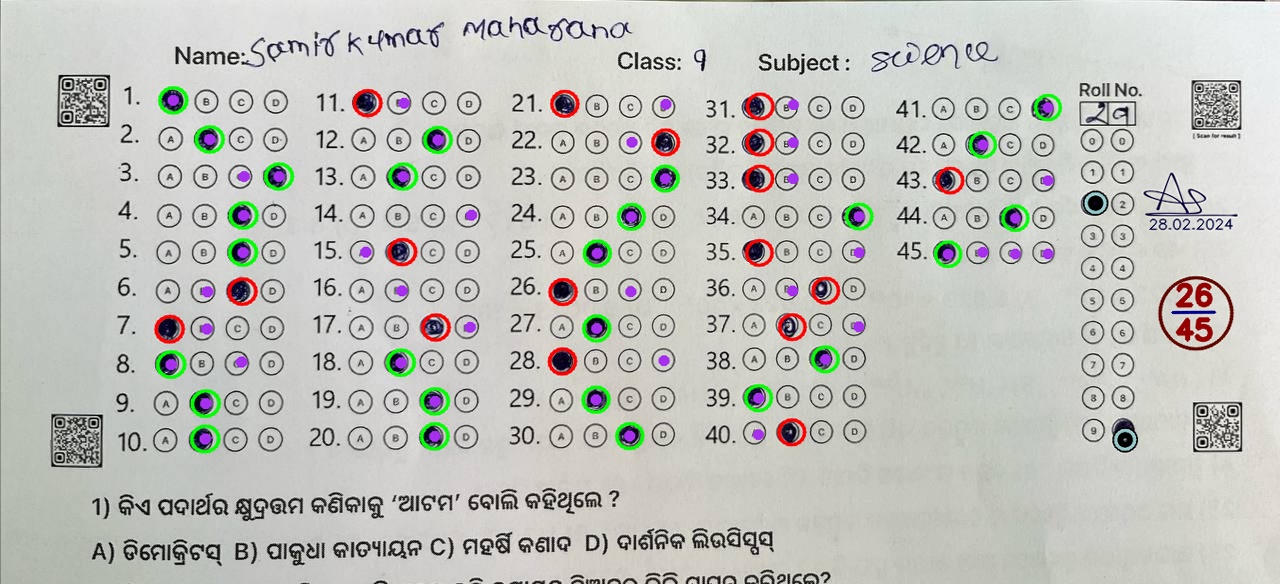 Name: Samir kumar Maharana
Class: 9 Subject: science
Roll No.
29
[Scan for result]
1. A B C D
2. A B C D
3. A B C D
4. A B C D
5. A B C D
6. A B C D
7. A B C D
8. A B C D
9. A B C D
10. A B C D
11. A B C D
12. A B C D
13. A B C D
14. A B C D
15. A B C D
16. A B C D
17. A B C D
18. A B C D
19. A B C D
20. A B C D
21. A B C D
22. A B C D
23. A B C D
24. A B C D
25. A B C D
26. A B C D
27. A B C D
28. A B C D
29. A B C D
30. A B C D
31. A B C D
32. A B C D
33. A B C D
34. A B C D
35. A B C D
36. A B C D
37. A B C D
38. A B C D
39. A B C D
40. A B C D
41. A B C D
42. A B C D
43. A B C D
44. A B C D
45. A B C D
0 0
1 1
2
3 3
4 4
5 5
6 6
7 7
8 8
9
28.02.2024
26
45
1) କିଏ ପଦାର୍ଥର କ୍ଷୁଦ୍ରତ୍ତମ କଣିକାକୁ ‘ଆଟମ’ ବୋଲି କହିଥିଲେ ?
A) ଡିମୋକ୍ରିଟସ୍ B) ପାକୁଧା କାତ୍ୟାୟନ C) ମହର୍ଷି କଣାଦ D) ଦାର୍ଶନିକ ଲିଉସିପ୍ପସ୍